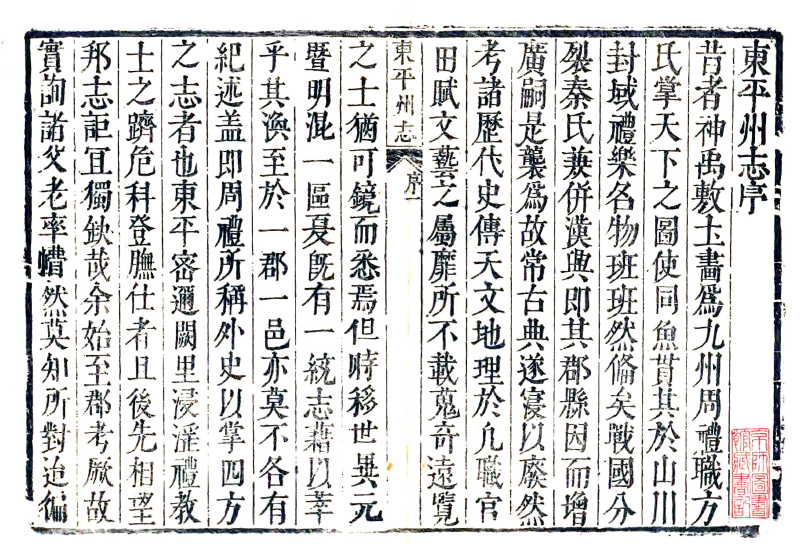 東平州志序
昔者神禹敷土畫爲九州周禮職方
氏掌天下之圖使同魚貫其於山川
封域禮樂名物班班然俻矣戰國分
裂秦氏兼併漢興即其郡縣因而增
廣嗣是襲爲故常古典遂寖以廢然
考諸歷代史傳天文地理於凡職官
田賦文藝之屬靡所不載蒐奇遠覽
東平州志
序一
之士猶可鏡而悉焉但時移世異元
曁明混一區夏旣有一統志藉以萃
乎其渙至於一郡一邑亦莫不各有
紀述盖即周禮所稱外史以掌四方
之志者也東平密邇闕里浸淫禮教
士之躋危科登膴仕者且後先相望
邦志詎冝獨缺哉余始至郡考厥故
實詢諸父老率懵然莫知所對迨徧